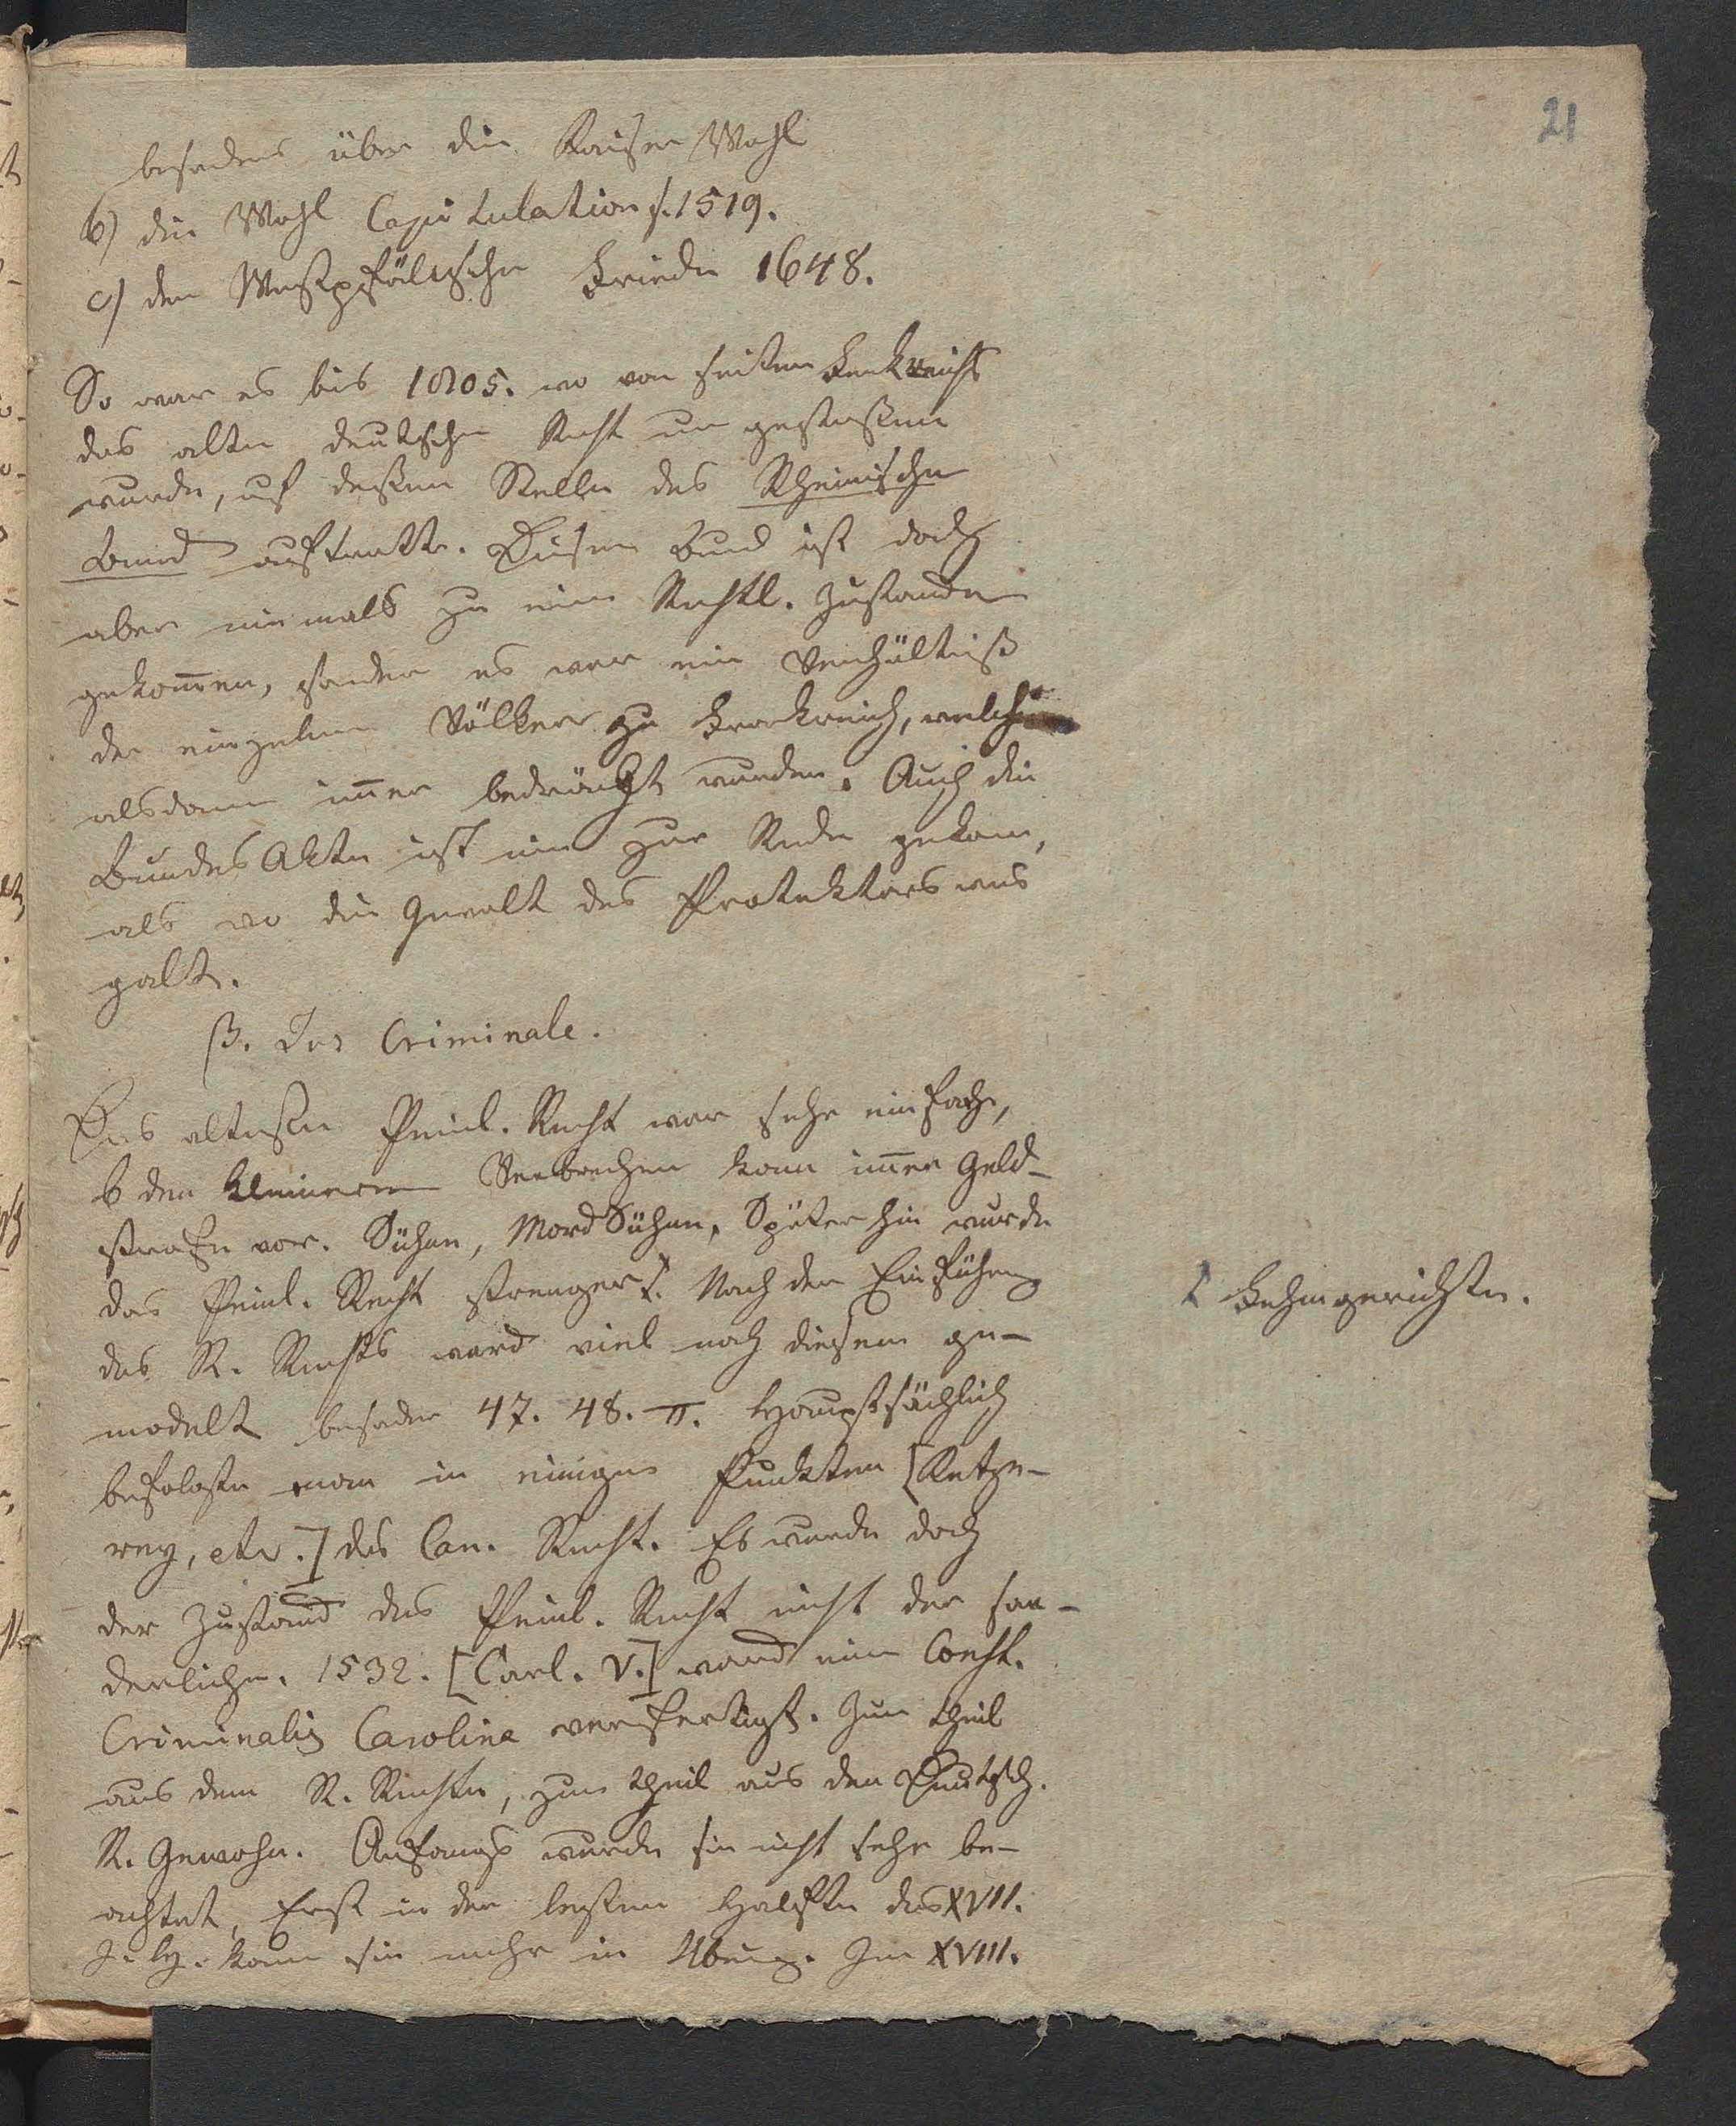 21
besonders über die Kaiser Wahl
b) die Wahl Capitulation s. 1519.
c) den Westpfälischen Friede 1648.
So war es bis 1805. wo von seiten Frankreichs
das alte deutsche Recht um gestossen
wurde, uf dessen Stelle der Rheinische
Bund auftratt. Dieser Bund ist doch
aber niemals zu eim Rechtl. Zustande
gekom̅en, sonder es war ein Verhältniß
der einzelnen Völker zu Frankreich, welche
alsdann im̅er bedrängt wurden. Auch die
Bundes Akte ist nie zur Rede gekom,
als wo die Gewalt des Protektors was
galt.
β. Das Criminale.
Das alteste Peinl. Recht war sehr einfach,
b den kleineren Verbrechen kam im̅er Geld-
strafe vor. Sühne, Mord Sühne, Späterhin wurde
das Peinl. Recht strenger. Nach der Einführung
Fehmgerichte.
des R. Rechts ward viel nach diesem ge-
modelt besonder 47. 48. π. Hauptsächlich
befolgte man in einigen Punkten [Ketze-
rey, etc.] das Can. Recht. Es wurde doch
der Zustand des Peinl. Recht nicht der for-
derliche. 1532. [Carl. V.] ward eine Const.
Criminalis Carolina verfertigt. Zum theil
aus dem R. Rechte, zum theil aus den Deutsch.
R. Gewohn. Anfangs wurde sie nicht sehr be-
achtet, Erst in der lezten Halfte des XVII.
J. h. kam sie mehr in Übung. Im XVIII.